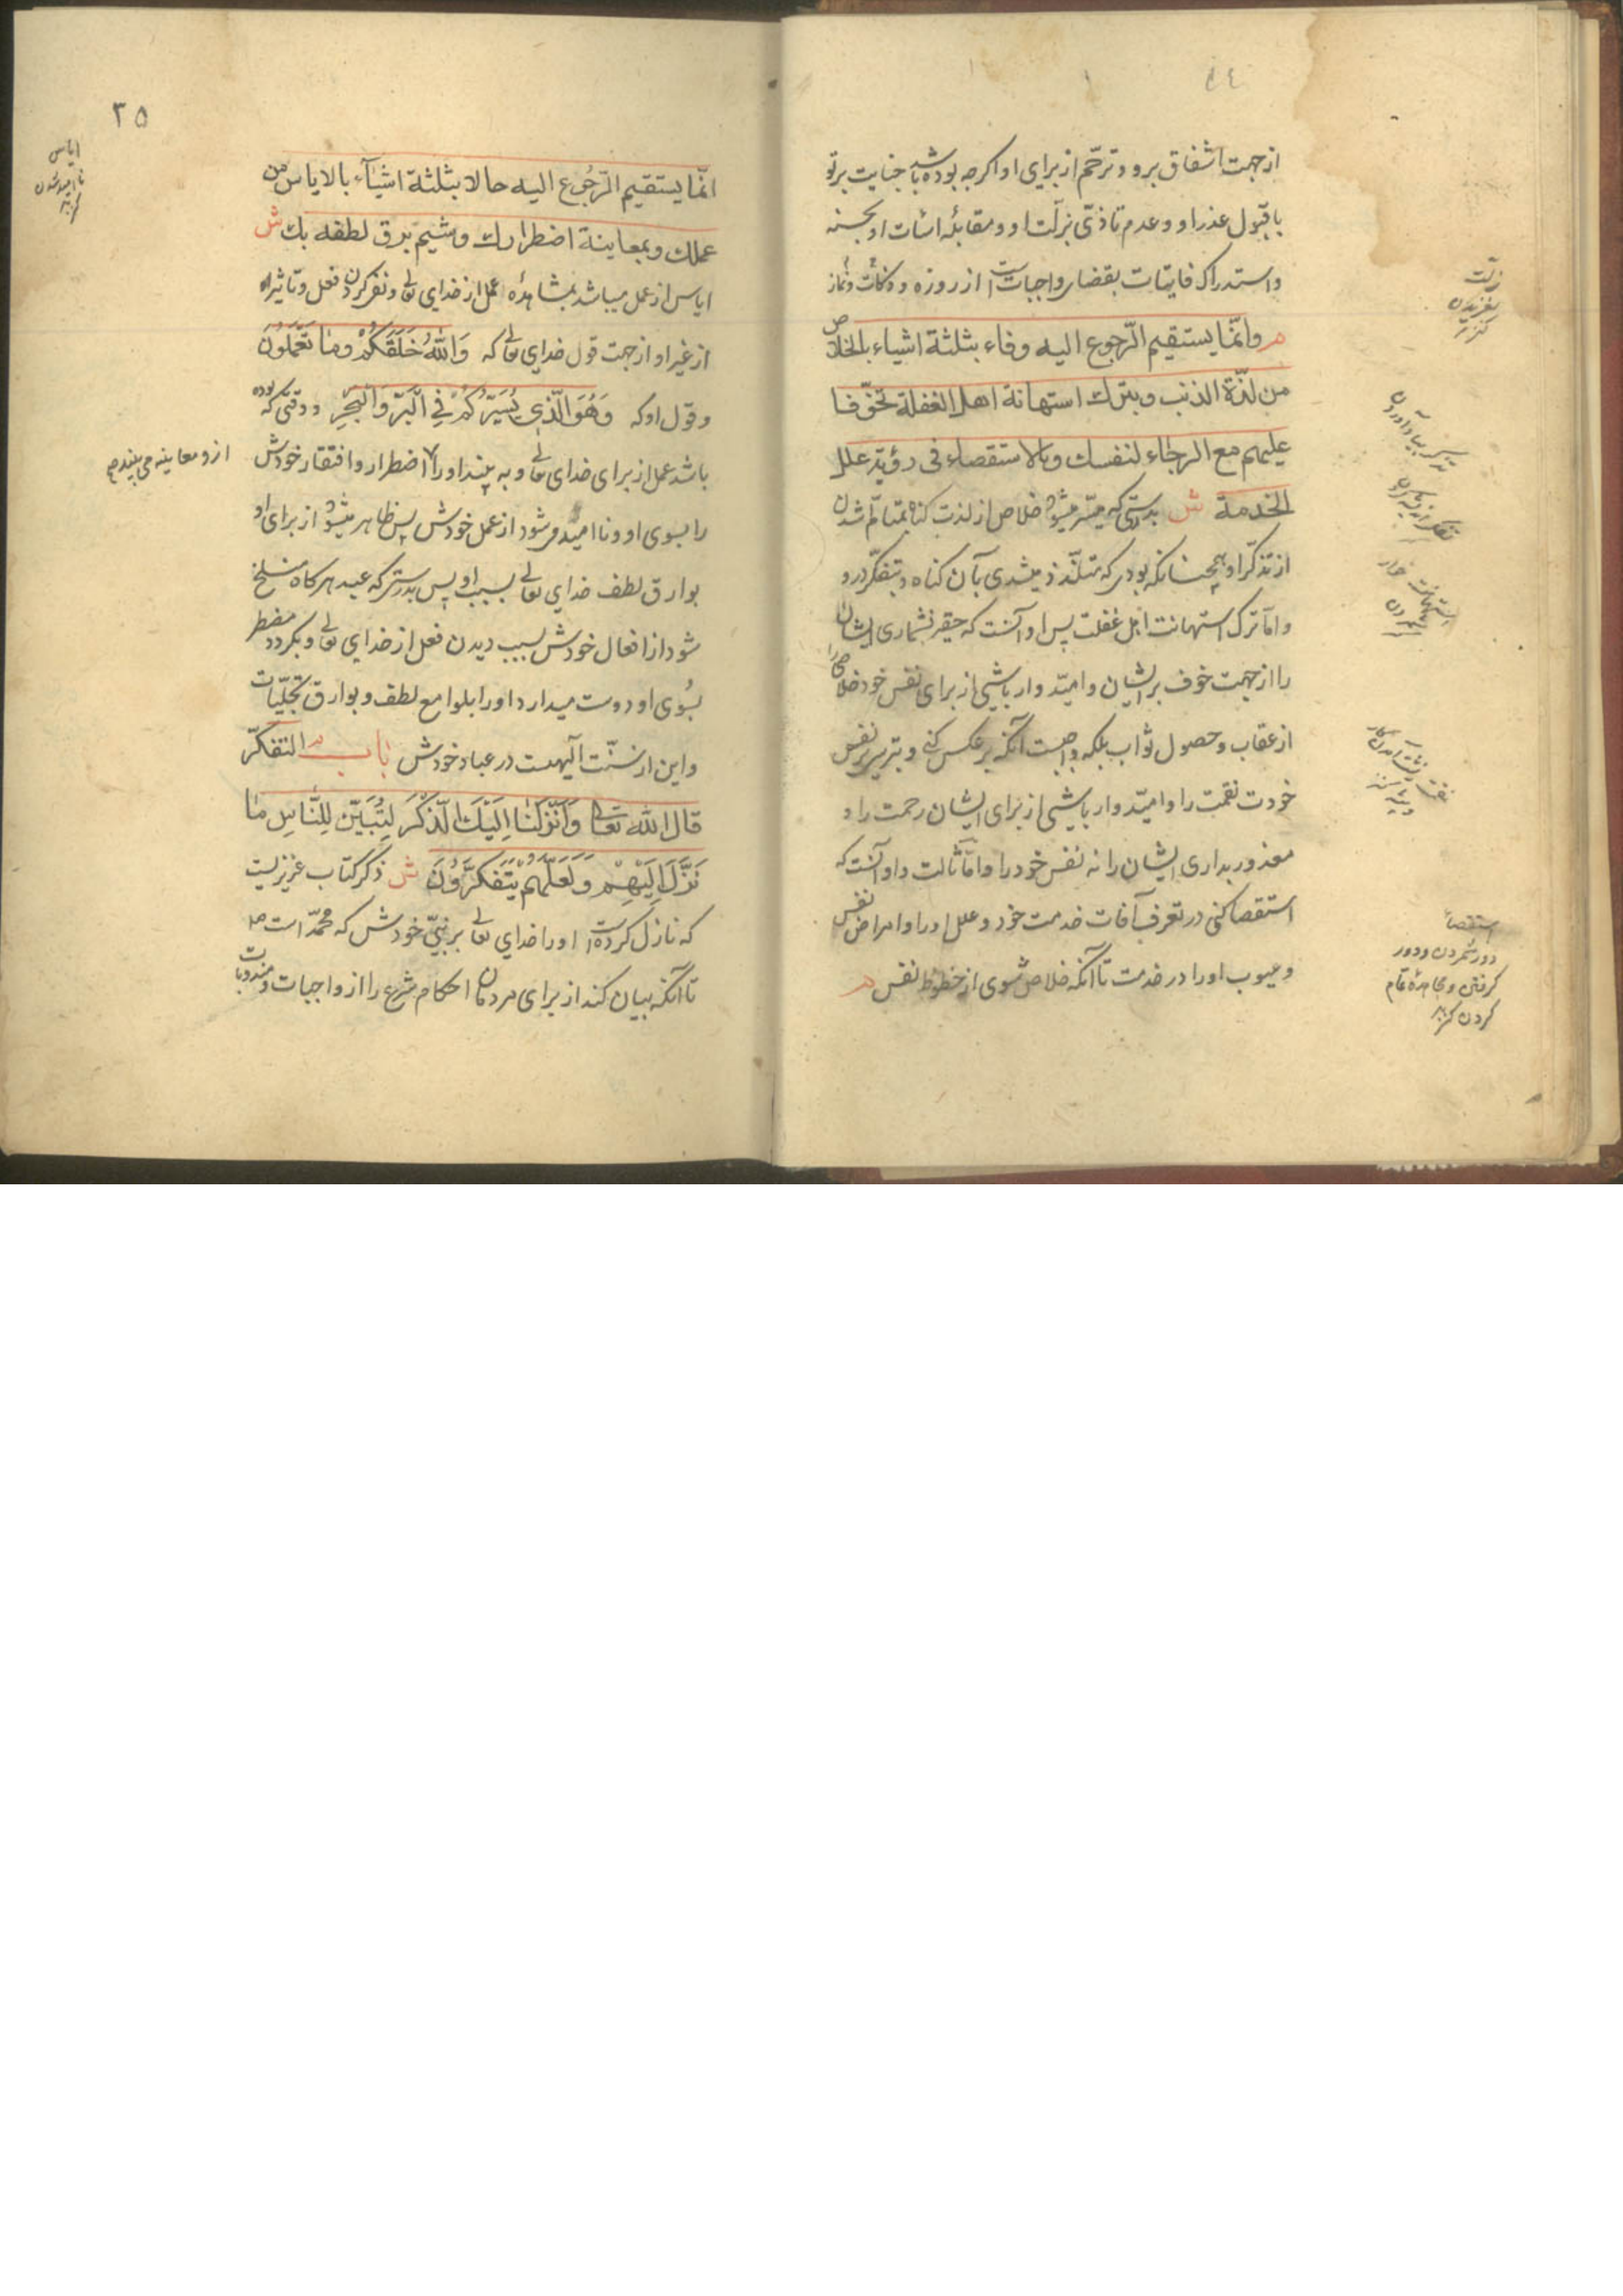 از جهت اشفاق برو و ترحّم از برای او اکرچه بوده باشد جنایت برتو
با قبول عذر او و عدم تاذّی بزلّت او و مقابلهٔ اسٔات او بحسنه
و استدراک فایتات بقضای واجبات است از روزه و زکات و نماز
م وانّما يستقيم الرّجوع اليه وفاء بثلثة اشياء بالخلاص
من لذّة الذنب وبترك استهانة اهل الغفلة تخوّفا
عليهم مع الرجاء لنفسك وبالاستقصاء فى رؤية علل
الخدمة ش بدرستی که میسّر میشود خلاص از لذت کناه بمتالّم شدن
از تذکّر او همچنانکه بودی که متلذّذ میشدی بآن کناه و بتفکّر درو
و امّا ترک استهانت اهل غفلت پس او آنست که حقیر نشماری ایشان
را از جهت خوف بر ایشان و امیّد وار باشی از برای نفس خود خلاصی را
از عقاب و حصول ثواب بلکه واجبست آنکه بر عکس کنی و بترسی بر نفس
خودت نقمت را و امیّد وار باشی از برای ایشان رحمت را و
معذور بداری ایشان را نه نفس خود را و امّا ثالث و او آنست که
استقصا کنی در تعرف آفات خدمت خود و علل او را و امراض نفس
و عیوب او را در خدمت تا آنکه خلاص شوی از حظوظ نفس م
زلّت
لغزیدن
کنز
تذکر بیاد آوردن
تفکر اندیشه کردن
استهانت خوار
استقصا
دور شمردن و دور
کرفتن و بجا تمام
کردن کنز
۲۵
انّما يستقيم الرّجوع اليه حالا بثلثة اشيآء بالاياس من
عملك وبمعاينة اضطرارك وشيم برق لطفه بك ش
ایاس از عمل میباشد بمشاهدهٔ عمل از خدای تعالی و نفی کردن فعل و تاثیر
از غیر او از جهت قول خدای تعالی که وَاللّٰهُ خَلَقَكُمْ وَمَا تَعْمَلُونَ
و قول او که وَهُوَ الَّذِي يُسَيِّرُكُمْ فِي الْبَرِّ وَالْبَحْرِ و وقتی که بوده
باشد عمل از برای خدای تعالی و به بیند او را اضطرار و افتقار خودش
را بسوی او و ناامید شود از عمل خودش پس ظاهر میشود از برای او
بوارق لطف خدای تعالی بسبب او پس بدرستی که عبد هر کاه منسلخ
شود از افعال خودش بسبب دیدن فعل از خدای تعالی و بکردد مضطر
بسوی او دوست میدارد او را بلوامع لطف و بوارق تجلّیات
و این از سنّت آلهیست در عباد خودش باب م التفكّر
قال الله تعالى وَاَنْزَلْنَا اِلَيْكَ الذِّكْرَ لِتُبَيِّنَ لِلنَّاسِ مَا
نُزِّلَ اِلَيْهِمْ وَلَعَلَّهُمْ يَتَفَكَّرُونَ ش ذکر کتاب عزیزیست
که نازل کرده است او را خدای تعالی بر نبیّ خودش که محمّد است
تا آنکه بیان کند از برای مردمان احکام شرع را از واجبات و مندوبات
ایاس
ناامید شدن
کنز